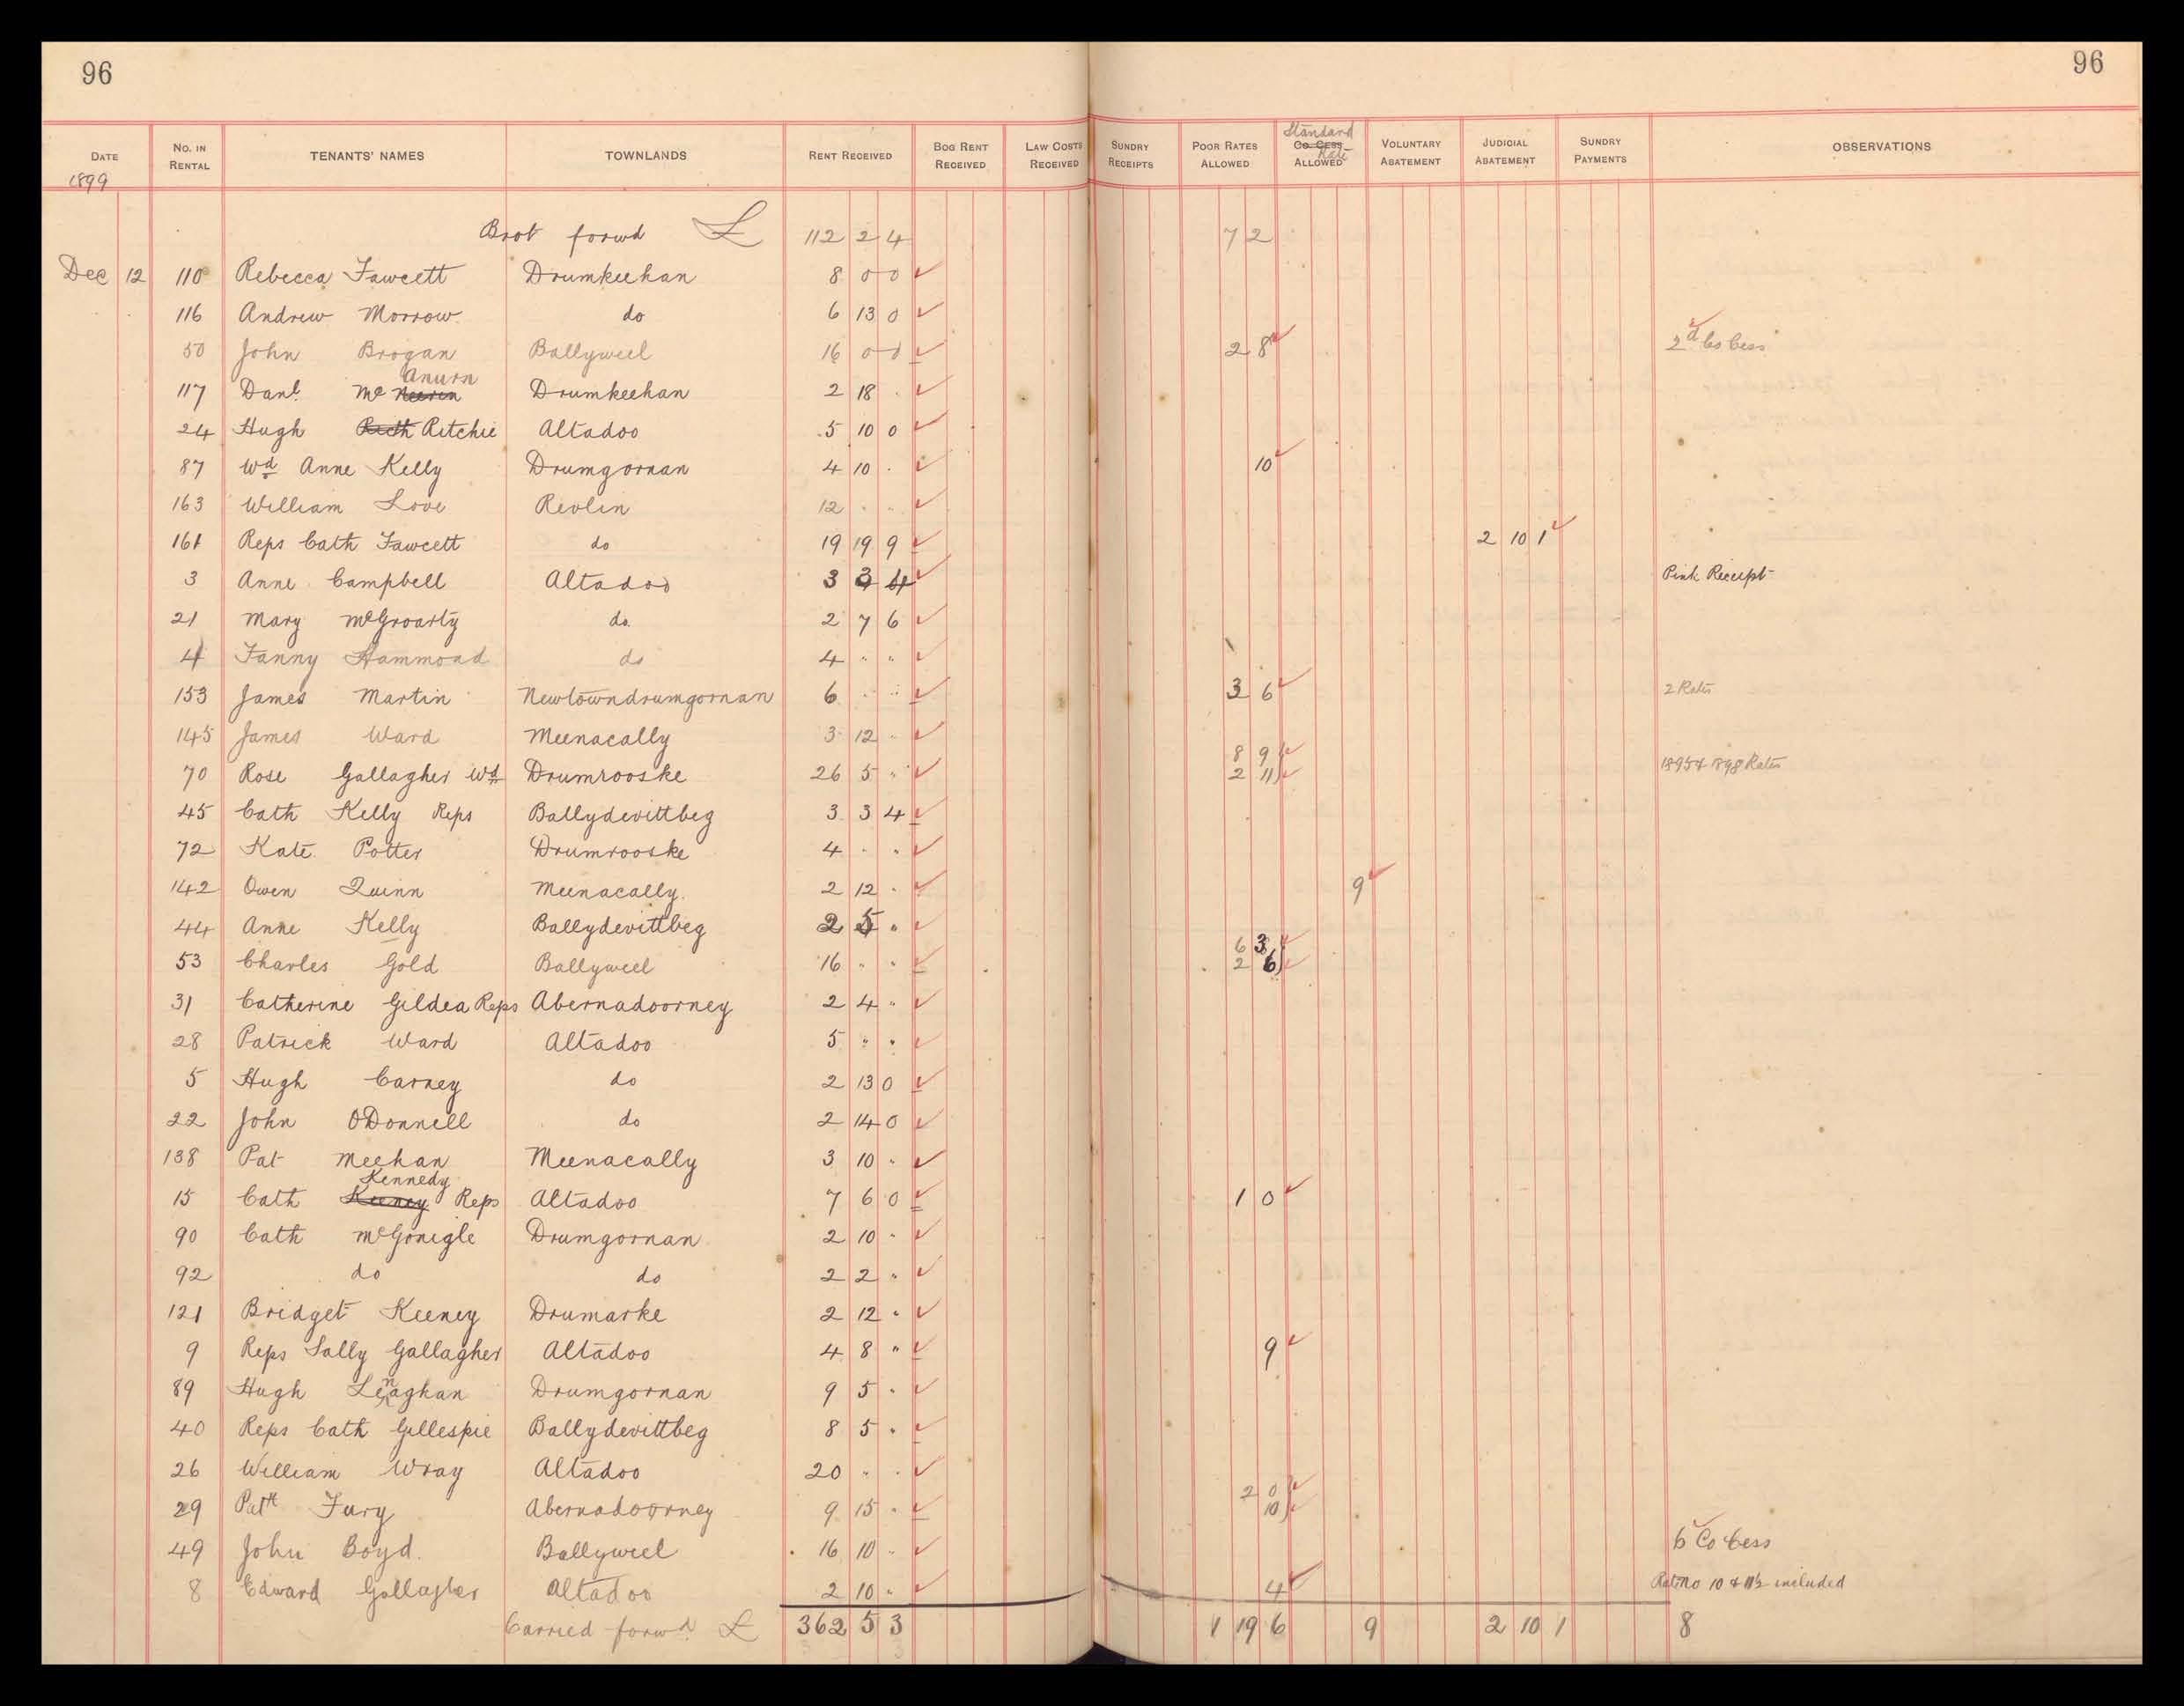 96 96
DATE No. IN RENTAL TENANTS' NAMES TOWNLANDS RENT RECEIVED BOG RENT RECEIVED LAW COSTS RECEIVED SUNDRY RECEIPTS POOR RATES ALLOWED Standard Co. Cess Rate ALLOWED VOLUNTARY ABATEMENT JUDICIAL ABATEMENT SUNDRY PAYMENTS OBSERVATIONS
1899
Brot forwd £ 112 2 4 7 2
Dec 12 110 Rebecca Fawcett Drumkeehan 8 0 0
116 Andrew Morrow do 6 13 0
50 John Brogan Ballyweel 16 0 0 2 8 2d Co Cess
117 Danl. Mc Neeren Anurn Drumkeehan 2 18 .
24 Hugh Rich Ritchie Altadoo 5 10 0
87 Wd Anne Kelly Drumgornan 4 10 . 10
163 William Love Revlin 12 . .
161 Reps Cath Fawcett do 19 19 9 2 10 1
3 Anne Campbell Altadoo 3 3 4 Pink Receipt
21 Mary McGroarty do. 2 7 6
4 Fanny Hammond do 4 " "
153 James Martin Newtowndrumgornan 6 . " 3 6 2 Rates
145 James Ward Meenacally 3 12 .
70 Rose Gallagher Wd Drumrooske 26 5 " 8 9 2 11 1895 & 1898 Rates
45 Cath Kelly Reps Ballydevittbeg 3 3 4
72 Kate Potter Drumrooske 4 . "
142 Owen Quinn Meenacally. 2 12 . 9
44 Anne Kelly Ballydevittbeg 2 5 "
53 Charles Gold Ballyweel 16 " " 6 3 2 6
31 Catherine Gildea Reps Abernadoorney 2 4 "
28 Patrick Ward Altadoo 5 " "
5 Hugh Carney do 2 13 0
22 John ODonnell do 2 14 0
138 Pat Meehan Meenacally 3 10 "
15 Cath Keeney Kennedy Reps Altadoo 7 6 0 1 0
90 Cath McGonigle Drumgornan 2 10 "
92 do do 2 2 "
121 Bridget Keeney Drumarke 2 12 "
9 Reps Sally Gallagher Altadoo 4 8 " 9
89 Hugh Lenaghan Drumgornan 9 5 "
40 Reps Cath Gillespie Ballydevittbeg 8 5 "
26 William Wray Altadoo 20 " .
29 Patk Fury Abernadoorney 9 15 " 2 0 10
49 John Boyd. Ballyweel 16 10 " 6 Co Cess
8 Edward Gallagher Altadoo 2 10 " 4 Rat. no 10 & 11½ included
Carried forwd £ 362 5 3 1 19 6 9 2 10 1 8